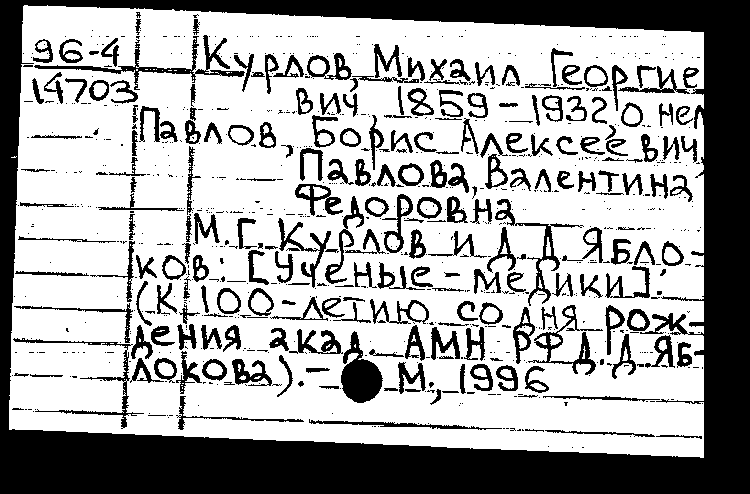 96-4 Курлов, Михаил Георгие
14703 вич, 1859-1932, о нем
Павлов, Борис Алексеевич,
Павлова, Валентина
Федоровна
М.Г. Курлов и Д.Д. Ябло-
ков: [Ученые-медики].
(К 100-летию со дня рож-
дения акад. АМН РФ Д.Д. Яб-
локова).- М., 1996